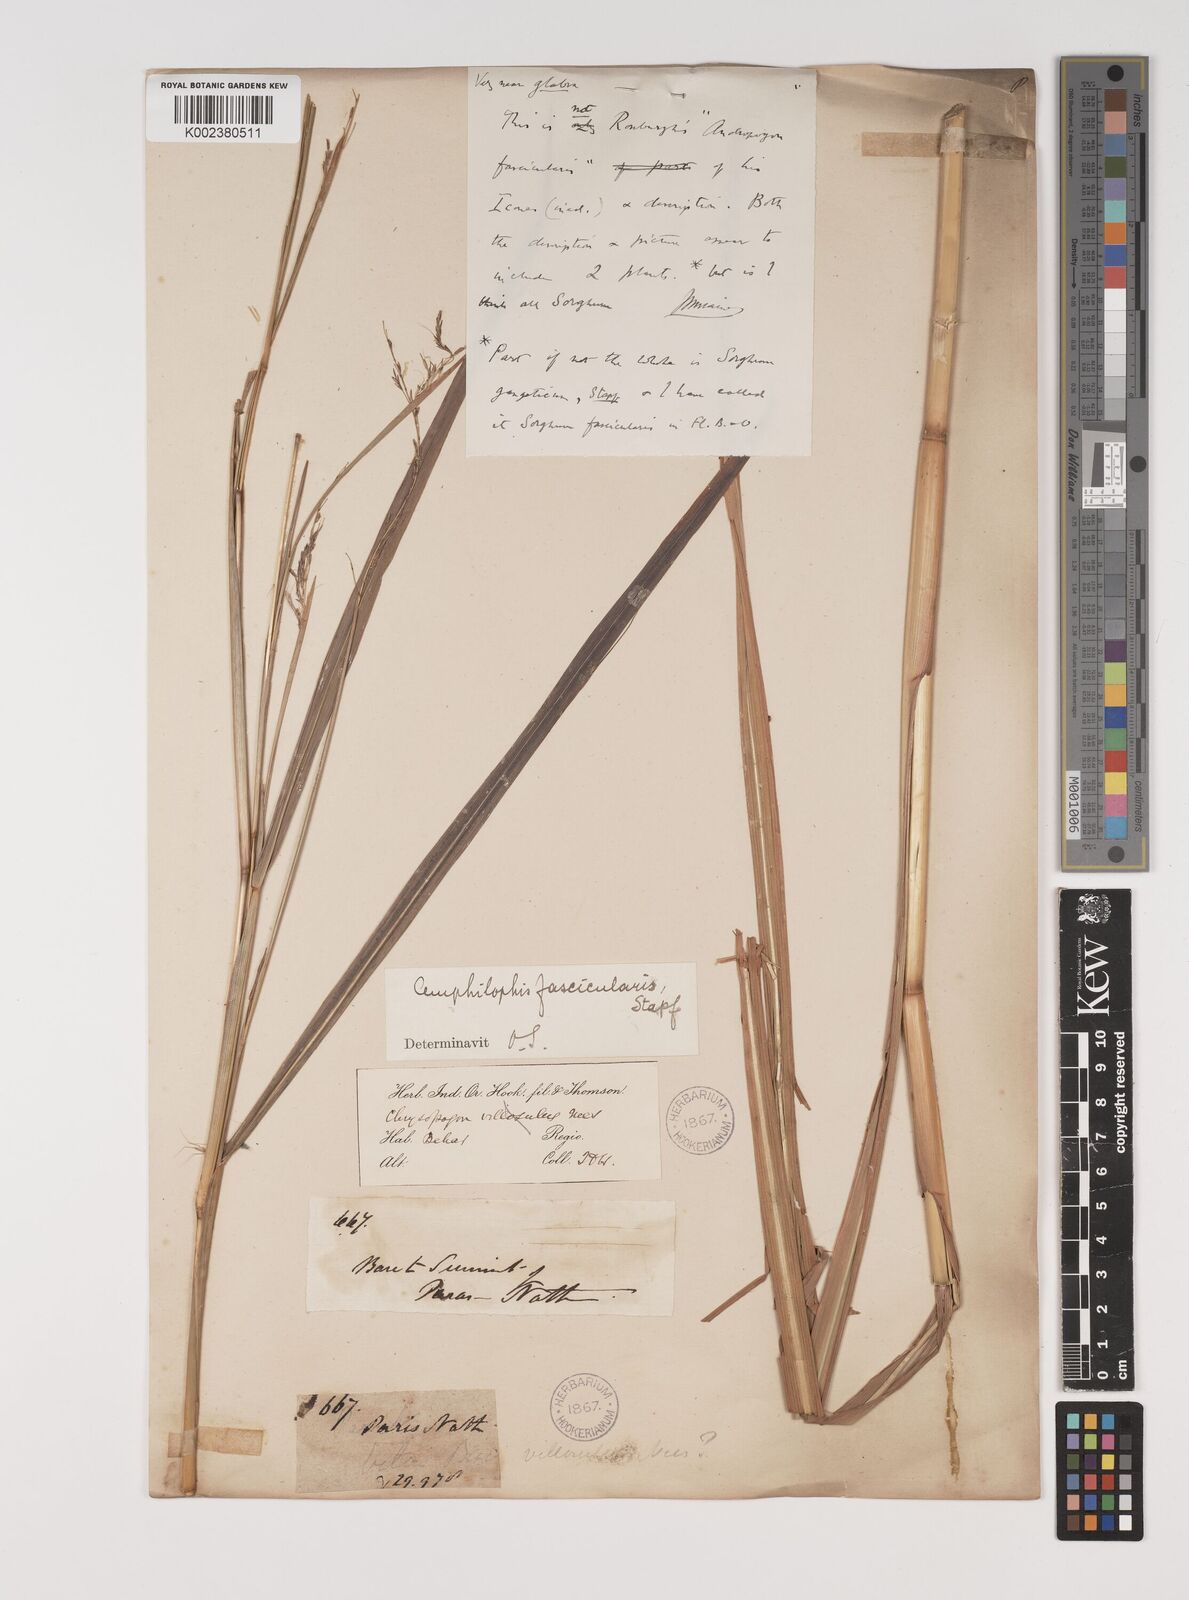 ROYAL BOTANIC GARDENS KEW
K002380511
Very near glabra
This is not Roxburgh's "Andropogon
fascicularis" of part of his
Icones (ined.) & description. Both
the description & picture appear to
include 2 plants. * but is I
think all Sorghum
* Part if not the whole is Sorghum
gangeticum, Stapf & I have called
it Sorghum fascicularis in Fl. B. & O.
Amphilophis fascicularis,
Stapf
Determinavit O.S.
Herb. Ind. Or. Hook. fil. & Thomson.
Chrysopogon villosulus Nees
Hab. Behar Regio.
Alt. Coll. JDH.
HERBARIUM
1867.
HOOKERIANUM
667.
Base to Summit of
Paras Nath
667.
Paris Nath
HERBARIUM
1867.
HOOKERIANUM
villosulus Nees?
inches
centimeters
Don Williams
M001006
Kew
Royal Botanic Gardens
copyright reserved
0 1 2 3 4 5 6 7 8 9 10
cm